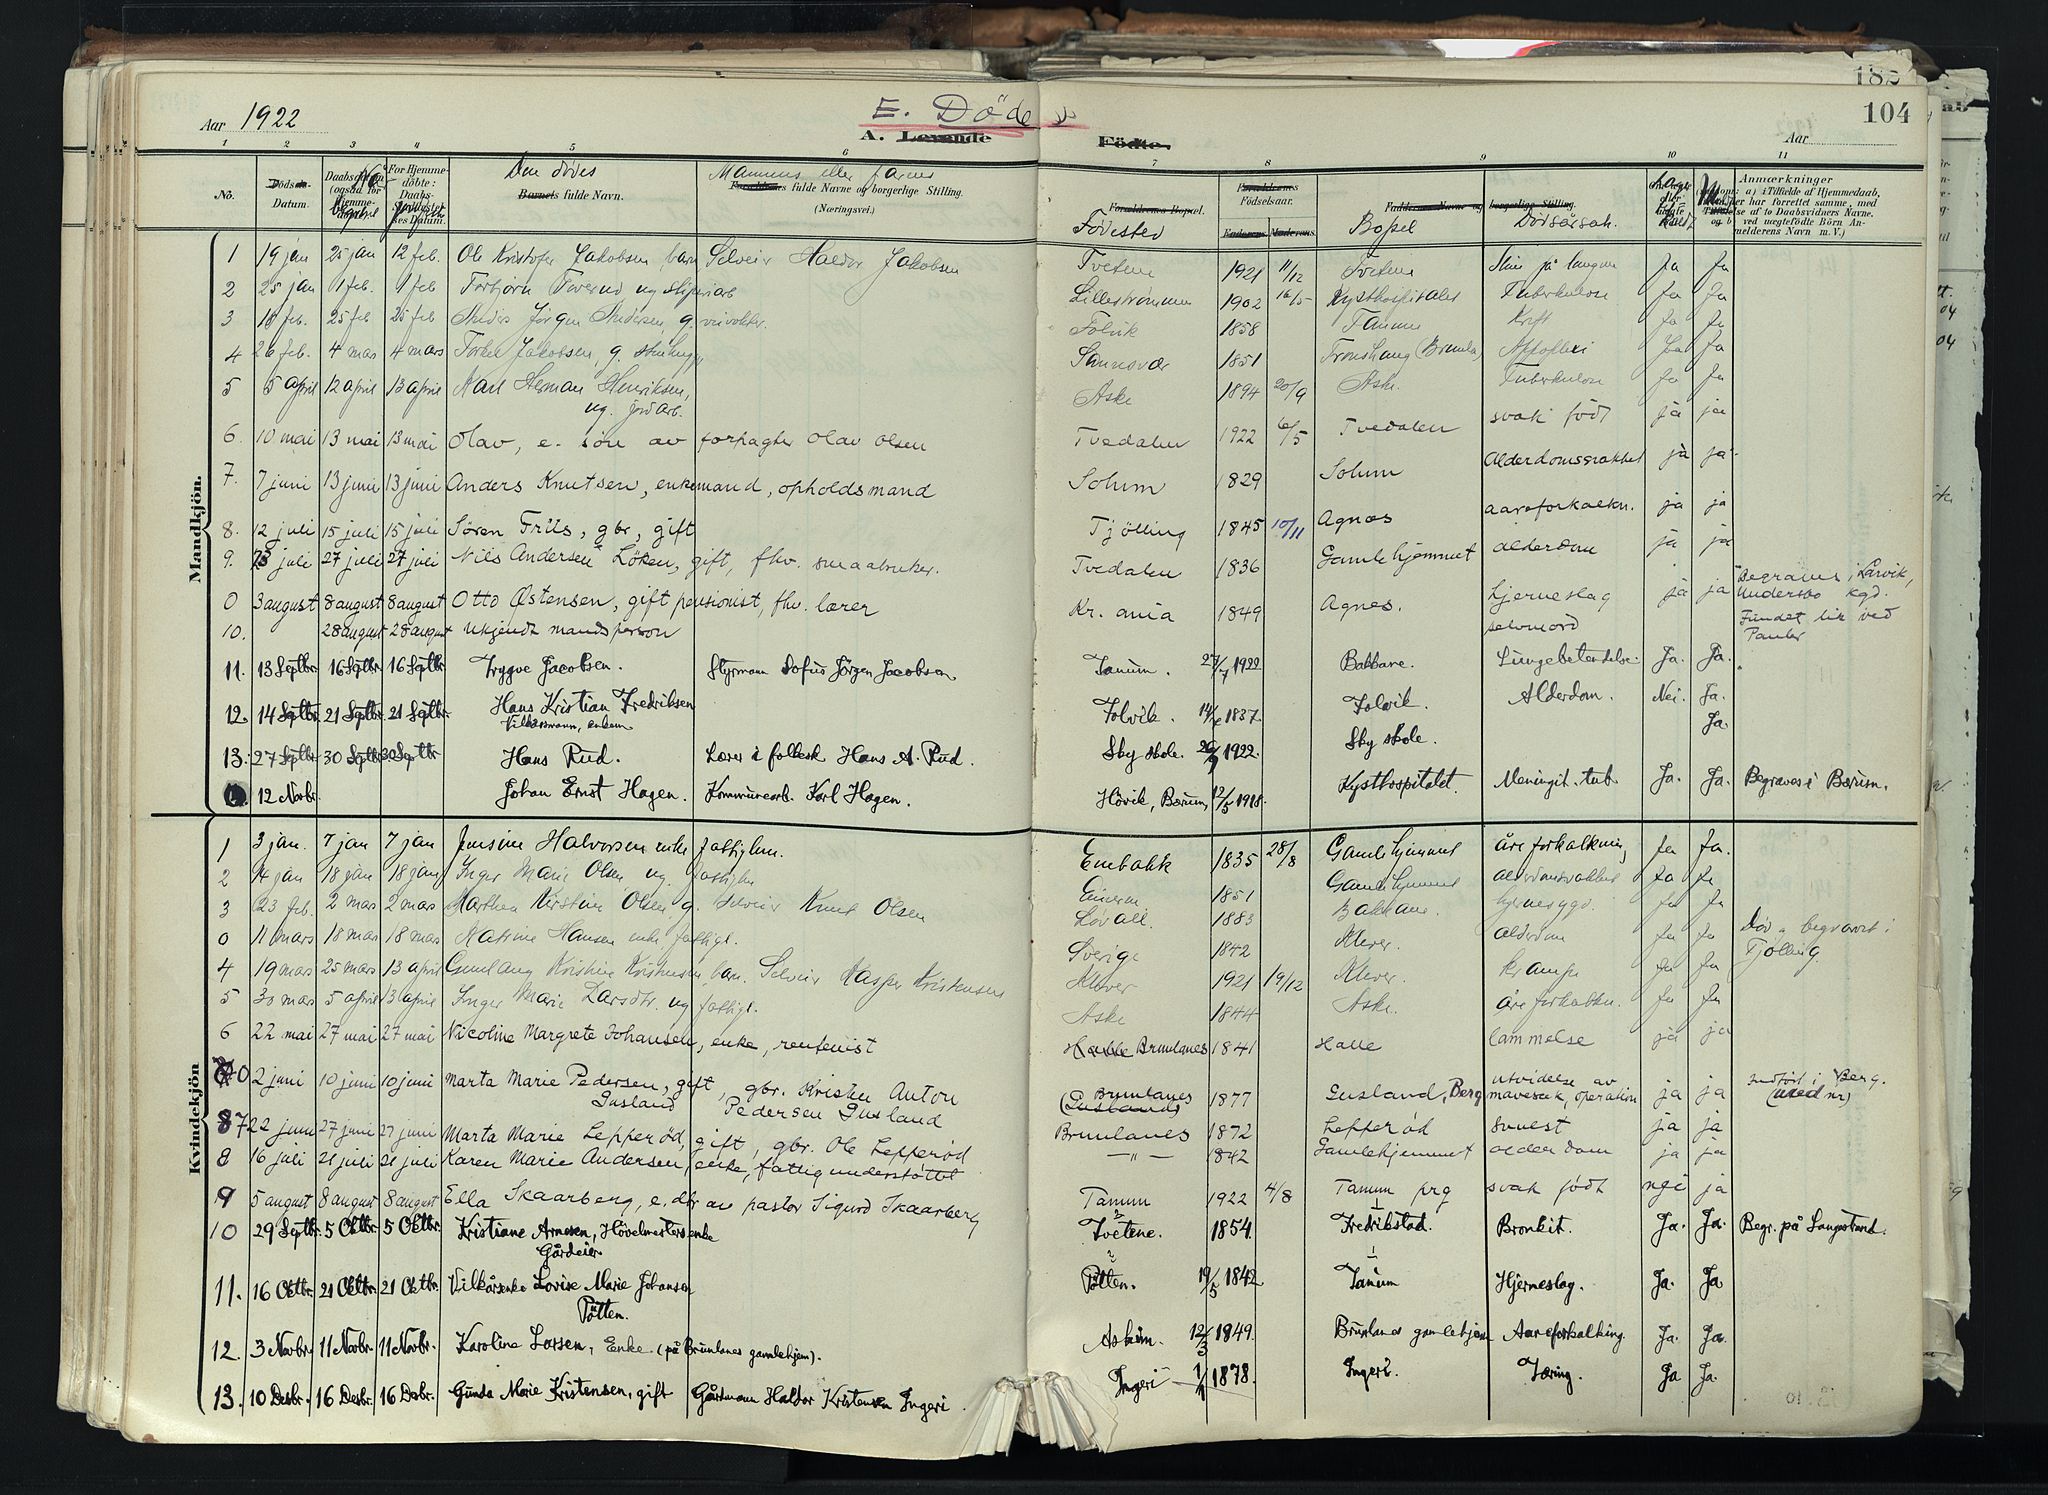 Aar 1922
E. Döde
A. Levende
Födte.
Aar
104
182
1 2 3 4 5 6 7 8 9 10 11
No.
Datum.
Daabsdatum (ogsaa for Hjemmedöbte)
For Hjemmedöbte: Daabs-Stadfæstelses Datum.
Den dödes
Barnets fulde Navn.
Mannens eller farens
Forældrenes fulde Navne og borgerlige Stilling.
(Næringsvei.)
Forældrenes Bopæl.
Födested
Forældrenes Födselsaar.
Faderens Moderens
Faddernes Navne og borgerlige Stilling.
Bopel
Dödsårsak.
Anmærkninger
Mandkjön.
1 19 jan 25 jan 12 feb. Ole Kristofer Jakobsen, barn Selveier Haldor Jakobsen Tvetene 1921 11/12 Tvetene Slim på lungene Ja Ja
2 25 jan 1 feb. 1 feb Torbjörn Foverud ug Lilleströmmen 1902 16/5 Kysthospitalet Tuberkulose Ja Ja
3 18 feb. 25 feb 25 feb Anders Jörgen Andersen, g. veivokter. Folvik 1858 Tanum Kreft Ja Ja
4 26 feb. 4 mas 4 mars Torkel Jakobsen, g. stenhugger Sannsvær 1851 Tronshaug (Brunla) Apoplexi Ja Ja
5 5 april 12 april 13 april Karl Herman Henriksen, ug. jordarb. Aske 1894 20/9 Aske. Tuberkulose Ja Ja
6. 10 mai 13 mai 13 mai Olav, e. sön av forpagter Olav Olsen Tvedalen 1922 6/5 Tvedalen svak födt ja ja
7. 7 juni 13 juni 13 juni Anders Knutsen, enkemand, opholdsmand Solum 1829 Solum Alderdomssvakhet ja ja
8. 12 juli 15 juli 15 juli Sören Friis, gbr, gift Tjölling 1845 10/11 Agnes aareforkalkn. ja ja
9. 23 juli 27 juli 27 juli Nils Andersen Löken, gift, fhv. smaabruker. Tvedalen 1836 Gamlehjemmet alderdom ja ja
0 3 august 8 august 8 august Otto Østensen, gift pensionist, fhv. lærer Kr. ania 1849 Agnes. hjerneslag ja ja Begraves i Larvik, Undersbo kgd.
10. 28 august 28 august Ukjendt mandsperson selvmord Fundet lik ved Pauler
11. 13 Septbr. 16 Septbr. 16 Septbr. Trygve Jacobsen. Styrmann Dofus Jörgen Jacobsen Tanum. 27/7 1922 Bakkane. Lungebetendelse. Ja. Ja.
12. 14 Septbr. 21 Septbr. 21 Septbr. Hans Kristian Fredriksen Vilkårsmann, enkem Folvik. 1837. Folvik. Alderdom. Nei. Ja.
13. 27 Septbr. 30 Septbr. 30 Septbr. Hans Rud. Lærer i folkesk Hans A. Rud. Sky skole. 26/9 1922. Sky skole. Ja.
12 Novbr. Johan Ernst Hagen. Kommunearb. Karl Hagen. Hövik, Bærum, 12/5 1918. Kysthospitalet. Meningit. tub. Ja. Ja. Begraves i Bærum.
Kvindekjön
1 3 jan. 7 jan 7 jan Jensine Halvorsen enke fattiglem. Embakk 1835 28/8 Gamlehjemmet åreforkalkning Ja Ja.
2 14 jan 18 jan 18 jan Inger Marie Olsen ug. fattiglem 1851 Gamlehjemmet alderdomsvakhet Ja Ja
3 23 feb. 2 mas 2 mas Marthea Kirstine Olsen g. Selveier Knut Olsen Løvall 1883 Bakkane. Ja Ja
0 11 mars 18 mas 18 mas Katrine Hansen enke fattigl. Sverige 1842 Klever. alderdom Ja Ja Död og begravet i Tjölling.
4 19 mas 25 mas 13 april Gunlaug Kristine Kristensen, barn. Selveier Kasper Kristensen Klever 1921 19/12 Klever. krampe Ja Ja
5 30 mas 5 april 13 april Inger Marie Larsdtr. ug fattigl. Aske 1844 Aske. åreforkalkn. Ja Ja
6 22 mai 27 mai 27 mai Nicoline Margrete Johansen, enke, rentenist Brunlanes 1841 Halle lammelse ja ja
0 2 juni 10 juni 10 juni Marta Marie Pedersen, gift, gbr. Kristen Anton Gusland Pedersen Gusland Brunlanes (Gusland) 1877 Gusland, Berg utvidelse av mavesæk, operation ja ja Indført i Berg. (uten nr)
7 22 juni 27 juni 27 juni Marta Marie Lepperöd, gift, gbr. Ole Lepperöd Brunlanes 1872 Lepperöd ja ja
8 16 juli 21 juli 21 juli Karen Marie Andersen, enke, fattigunderstöttet —„— 1842 Gamlehjemmet alderdom ja ja
9 5 august 8 august 8 august Ella Skaarberg, e. dtr av pastor Sigurd Skaarberg Tanum 1922 4/8 Tanum prg svak födt nei ja
10 29 Septbr. 5 Oktbr. 5 Oktbr. Kristiane Arnesen, Hövelmestersenke Gårdeier Tvetene. 1854. Fredrikstad. Bronkit. Ja. Ja. Begr. på Langestrand.
11. 16 Oktbr. 21 Oktbr. 21 Oktbr. Vilkårsenke Lovise Marie Johansen Pötten. Pötten. 19/5 1842 Tanum Hjerneslag. Ja. Ja
12. 3 Novbr. 11 Novbr. 11 Novbr. Karoline Larsen, Enke. (på Brunlanes gamlehjem). Askim. 12/3 1849. Brunlanes gamlehjem Aareforkalking. Ja. Ja.
13. 10 Desbr. 16 Desbr. 16 Desbr. Gunda Marie Kristensen, gift Gårdmann Haldor Kristensen Ingeri. Ingeri 1878. Ingeri. Tæring. Ja Ja.